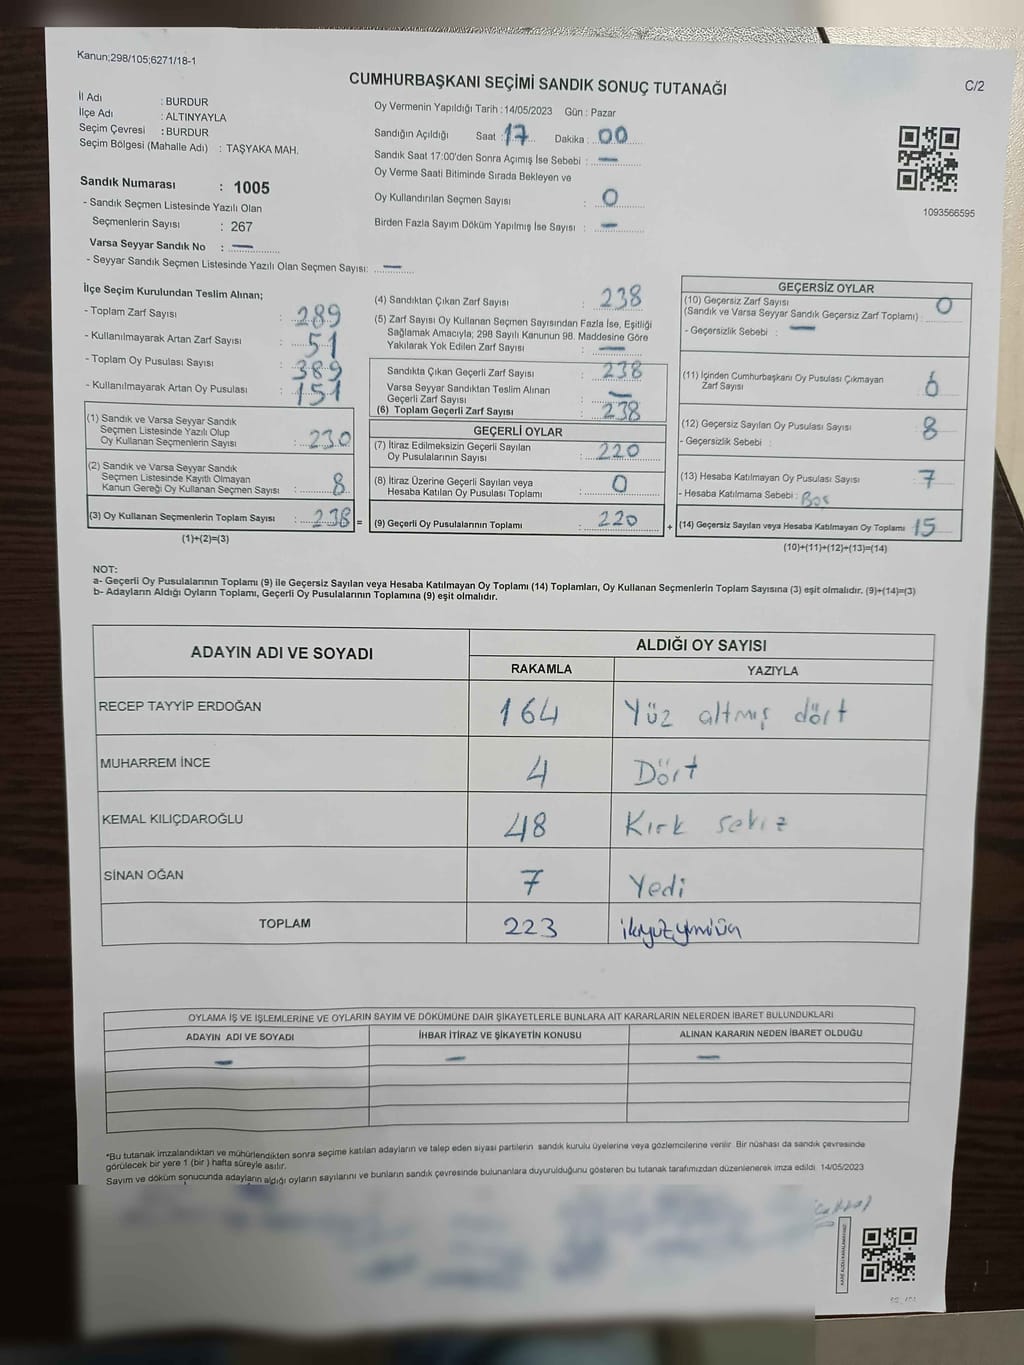 Kanun;298/105;6271/18-1
CUMHURBAŞKANI SEÇİMİ SANDIK SONUÇ TUTANAĞI
C/2
İl Adı : BURDUR
İlçe Adı : ALTINYAYLA
Seçim Çevresi : BURDUR
Seçim Bölgesi (Mahalle Adı) : TAŞYAKA MAH.
Sandık Numarası : 1005
- Sandık Seçmen Listesinde Yazılı Olan
Seçmenlerin Sayısı : 267
Varsa Seyyar Sandık No : —
- Seyyar Sandık Seçmen Listesinde Yazılı Olan Seçmen Sayısı: —
Oy Vermenin Yapıldığı Tarih : 14/05/2023 Gün : Pazar
Sandığın Açıldığı Saat : 17 Dakika : 00
Sandık Saat 17:00'den Sonra Açımış İse Sebebi : —
Oy Verme Saati Bitiminde Sırada Bekleyen ve
Oy Kullandırılan Seçmen Sayısı : 0
Birden Fazla Sayım Döküm Yapılmış İse Sayısı : —
1093566595
İlçe Seçim Kurulundan Teslim Alınan;
- Toplam Zarf Sayısı : 289
- Kullanılmayarak Artan Zarf Sayısı : 51
- Toplam Oy Pusulası Sayısı : 389
- Kullanılmayarak Artan Oy Pusulası : 151
(1) Sandık ve Varsa Seyyar Sandık
Seçmen Listesinde Yazılı Olup
Oy Kullanan Seçmenlerin Sayısı : 230
(2) Sandık ve Varsa Seyyar Sandık
Seçmen Listesinde Kayıtlı Olmayan
Kanun Gereği Oy Kullanan Seçmen Sayısı : 8
(3) Oy Kullanan Seçmenlerin Toplam Sayısı : 238 =
(1)+(2)=(3)
(4) Sandıktan Çıkan Zarf Sayısı : 238
(5) Zarf Sayısı Oy Kullanan Seçmen Sayısından Fazla İse, Eşitliği
Sağlamak Amacıyla; 298 Sayılı Kanunun 98. Maddesine Göre
Yakılarak Yok Edilen Zarf Sayısı : —
Sandıkta Çıkan Geçerli Zarf Sayısı : 238
Varsa Seyyar Sandıktan Teslim Alınan
Geçerli Zarf Sayısı : —
(6) Toplam Geçerli Zarf Sayısı : 238
GEÇERLİ OYLAR
(7) İtiraz Edilmeksizin Geçerli Sayılan
Oy Pusulalarının Sayısı : 220
(8) İtiraz Üzerine Geçerli Sayılan veya
Hesaba Katılan Oy Pusulası Toplamı : 0
(9) Geçerli Oy Pusulalarının Toplamı : 220 +
GEÇERSİZ OYLAR
(10) Geçersiz Zarf Sayısı
(Sandık ve Varsa Seyyar Sandık Geçersiz Zarf Toplamı) : 0
- Geçersizlik Sebebi : —
(11) İçinden Cumhurbaşkanı Oy Pusulası Çıkmayan
Zarf Sayısı
(12) Geçersiz Sayılan Oy Pusulası Sayısı : 8
- Geçersizlik Sebebi :
(13) Hesaba Katılmayan Oy Pusulası Sayısı : 7
- Hesaba Katılmama Sebebi : Boş
(14) Geçersiz Sayılan veya Hesaba Katılmayan Oy Toplamı 15
(10)+(11)+(12)+(13)=(14)
NOT:
a- Geçerli Oy Pusulalarının Toplamı (9) ile Geçersiz Sayılan veya Hesaba Katılmayan Oy Toplamı (14) Toplamları, Oy Kullanan Seçmenlerin Toplam Sayısına (3) eşit olmalıdır. (9)+(14)=(3)
b- Adayların Aldığı Oyların Toplamı, Geçerli Oy Pusulalarının Toplamına (9) eşit olmalıdır.
ADAYIN ADI VE SOYADI ALDIĞI OY SAYISI
RAKAMLA YAZIYLA
RECEP TAYYİP ERDOĞAN 164 Yüz altmış dört
MUHARREM İNCE 4 Dört
KEMAL KILIÇDAROĞLU 48 Kırk sekiz
SİNAN OĞAN 7 Yedi
TOPLAM 223
OYLAMA İŞ VE İŞLEMLERİNE VE OYLARIN SAYIM VE DÖKÜMÜNE DAİR ŞİKAYETLERLE BUNLARA AİT KARARLARIN NELERDEN İBARET BULUNDUKLARI
ADAYIN ADI VE SOYADI İHBAR İTİRAZ VE ŞİKAYETİN KONUSU ALINAN KARARIN NEDEN İBARET OLDUĞU
— — —
*Bu tutanak imzalandıktan ve mühürlendikten sonra seçime katılan adayların ve talep eden siyasi partilerin sandık kurulu üyelerine veya gözlemcilerine verilir. Bir nüshası da sandık çevresinde
görülecek bir yere 1 (bir ) hafta süreyle asılır.
Sayım ve döküm sonucunda adayların aldığı oyların sayılarını ve bunların sandık çevresinde bulunanlara duyurulduğunu gösteren bu tutanak tarafımızdan düzenlenerek imza edildi. 14/05/2023